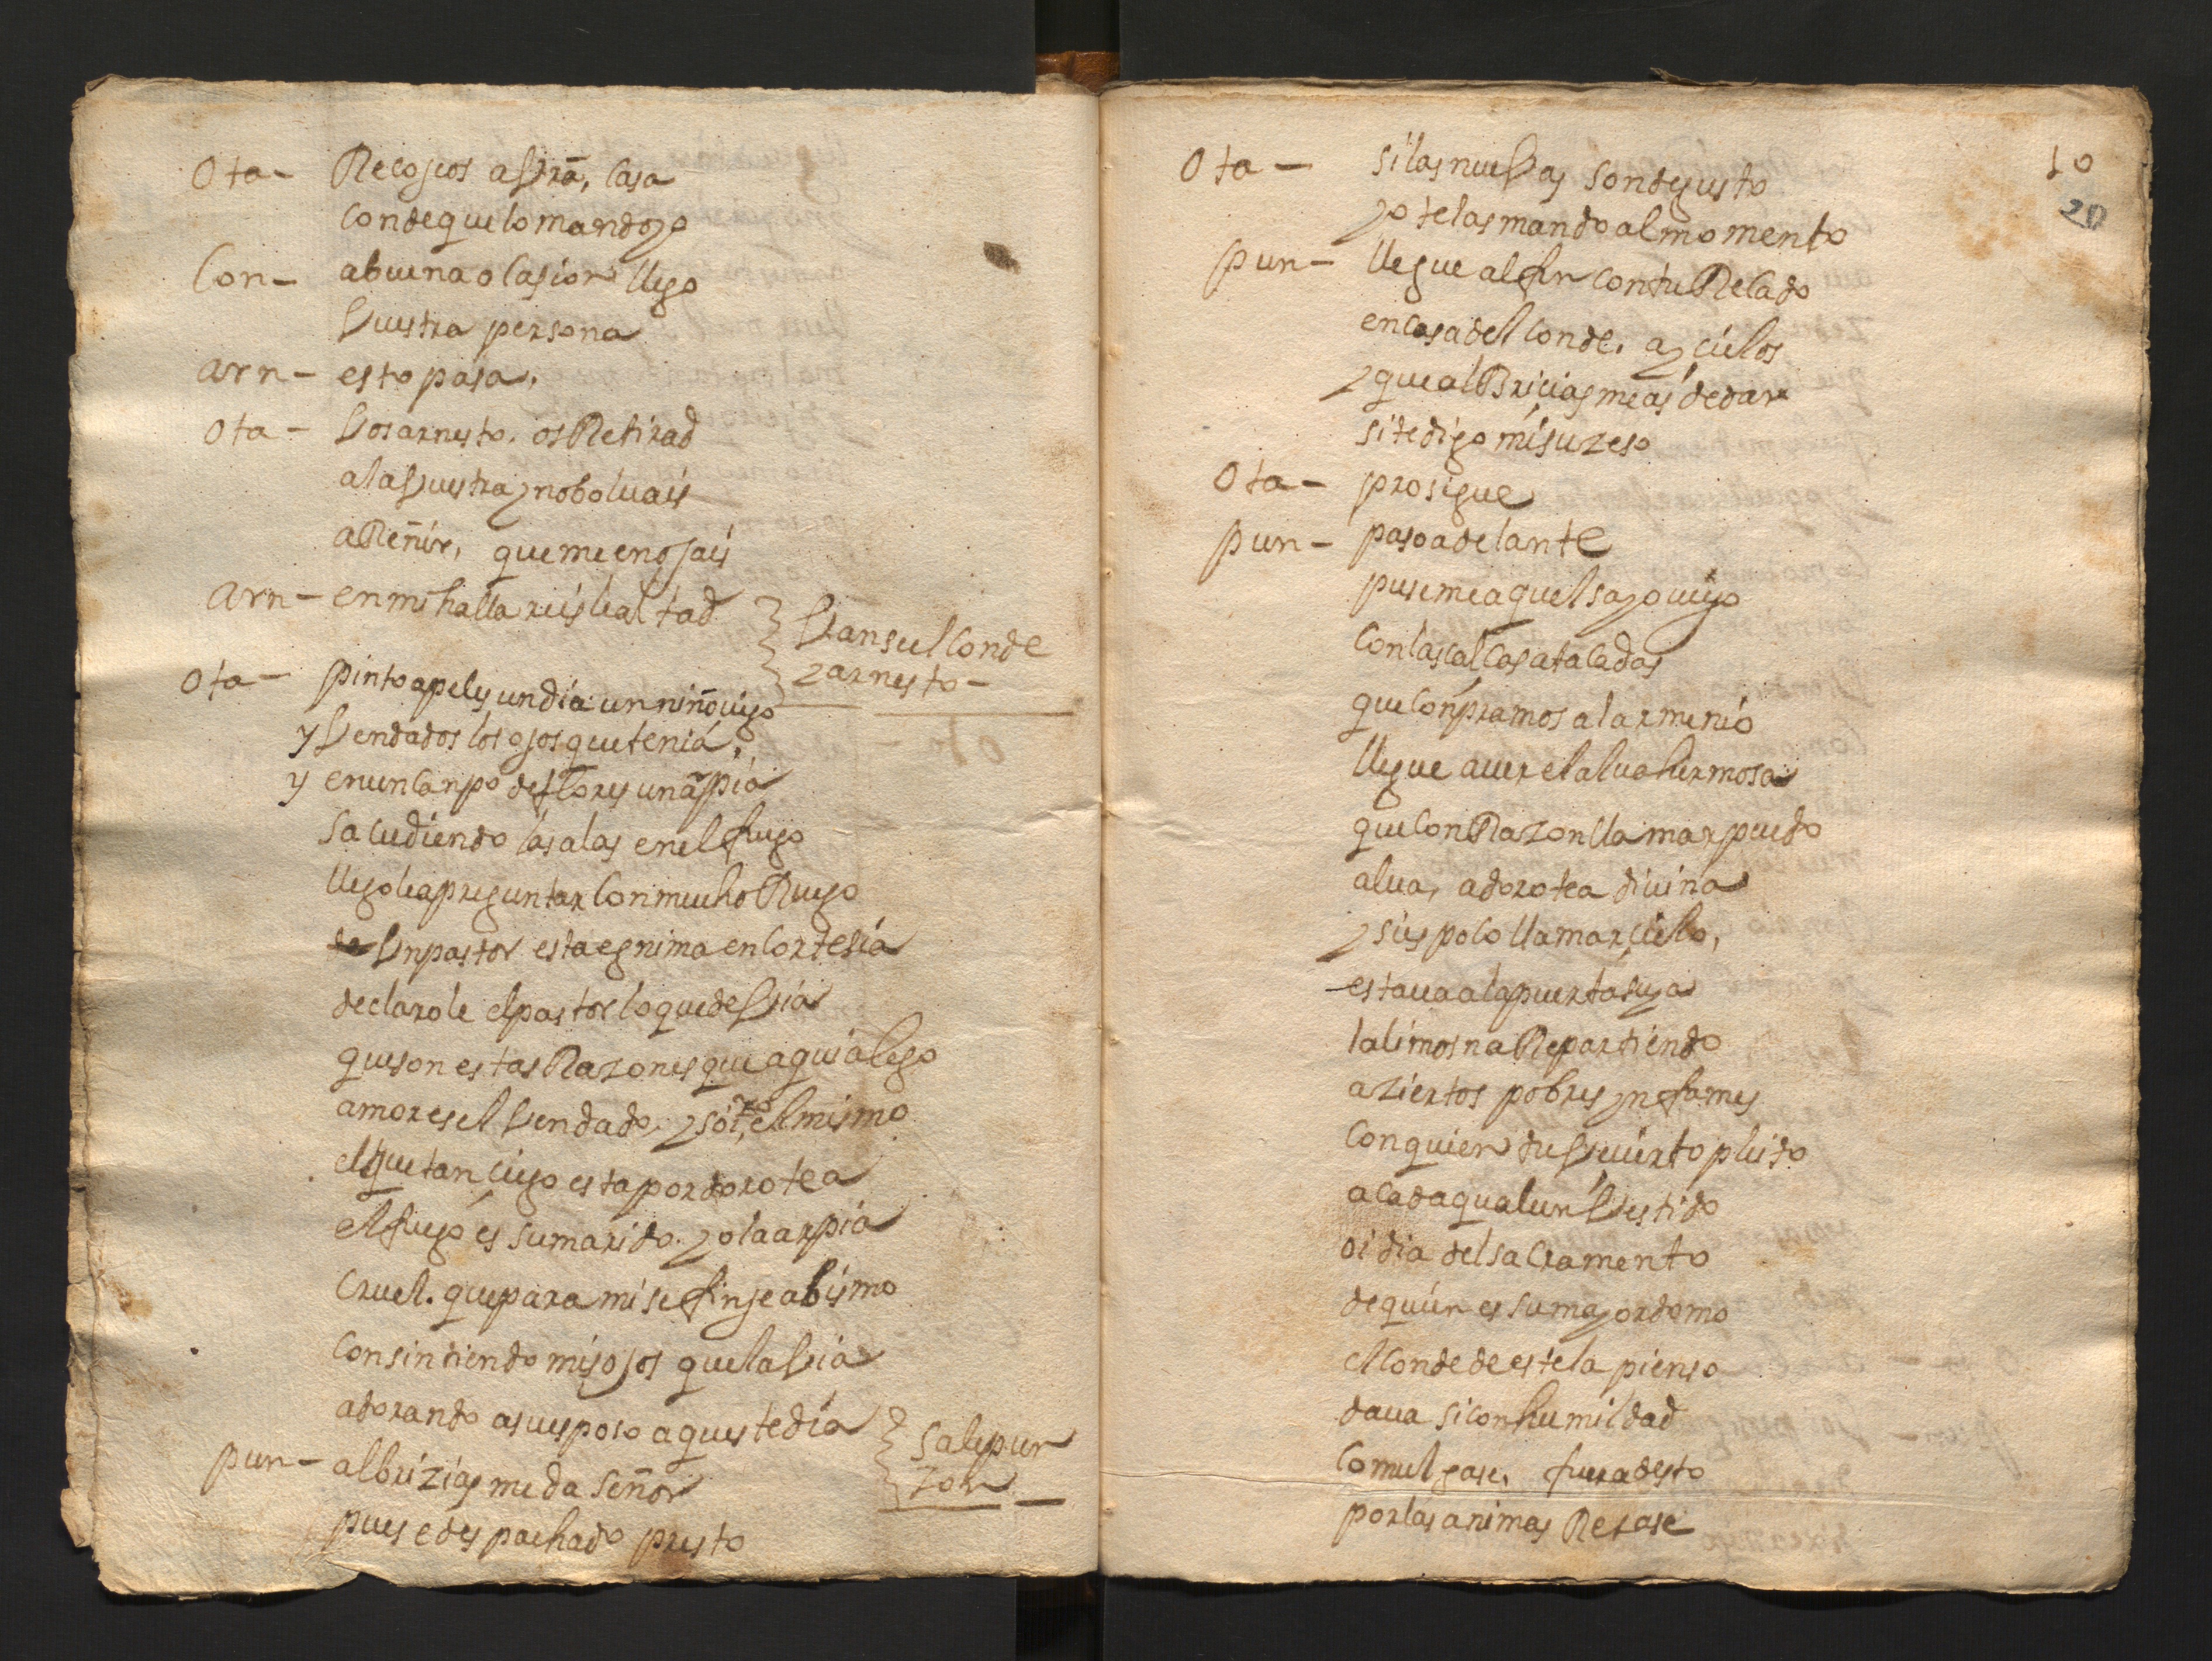 Ota- Recojeos a Vrã, casa
conde que lo mando yo
Con- a buena ocasion llego
Vuestra persona
arn- esto pasa,
Ota- Vos arnesto. os Retirad
a la Vuestra y no bolvais
a Reñir, que me enojais
arn- en mi hallareis lealtad
Vanse el conde
y arnesto-
Ota- pinto apeles un dia un niño ciego
y Vendados los ojos que tenia,
y en un canpo de flores un arpia
sacudiendo las alas en el fuego
llegole a preguntar con mucho Ruego
Un pastor esta egnima en cortesia
declarole el pastor lo que deVia
que son estas Razones que aqui alego
amor es el Vendado, y soi yo el mismo
el que tan ciego esta por dorotea
el fuego es su marido. yo la arpia
cruel. que para mi se finje abismo
consintiendo mis ojos que la Via
adorando a su esposo aqueste dia
sale pun
zon
pun- albrizias me da señor
pues e despachado presto
10
20
Ota- si las nueVas son de gusto
yo te las mando al momento
pun- llegue al fin con tu Recado
en casa del conde. ay cielos
y que alBricias me as de dar
si te digo mi suzeso
Ota- prosigue
pun- paso adelante
puseme aquel sayo viejo
con las calcas atacadas
que conpramos al armenio
llegue a ver el alva hermosa
que con Razon llamar puedo
alva, a dorotea divina
y si es poco llamar cielo,
estava a la puerta suya
la limosna Repartiendo
a ziertos pobres ynfames
con quien tuVe cierto pleido
a cada qual un Vestido
oi dia del sacramento
de quien es su mayordomo
el conde de estela pienso
dava si con humildad
comulgase. fuera desto
por las animas Rezase